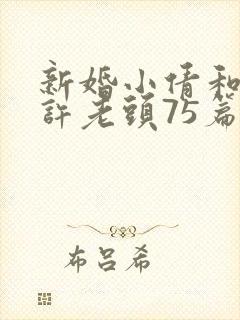 新婚小倩和
許老頭75篇
布吕希